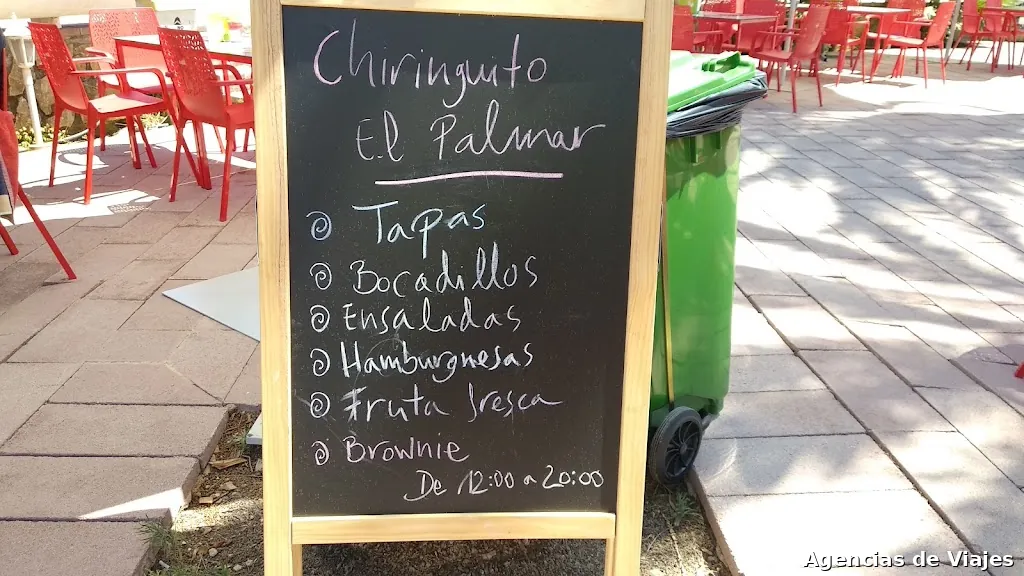 Chiringuito
El Palmar
Tapas
Bocadillos
Ensaladas
Hamburguesas
Fruta fresca
Brownie
De 12:00 a 20:00
Agencias de Viajes